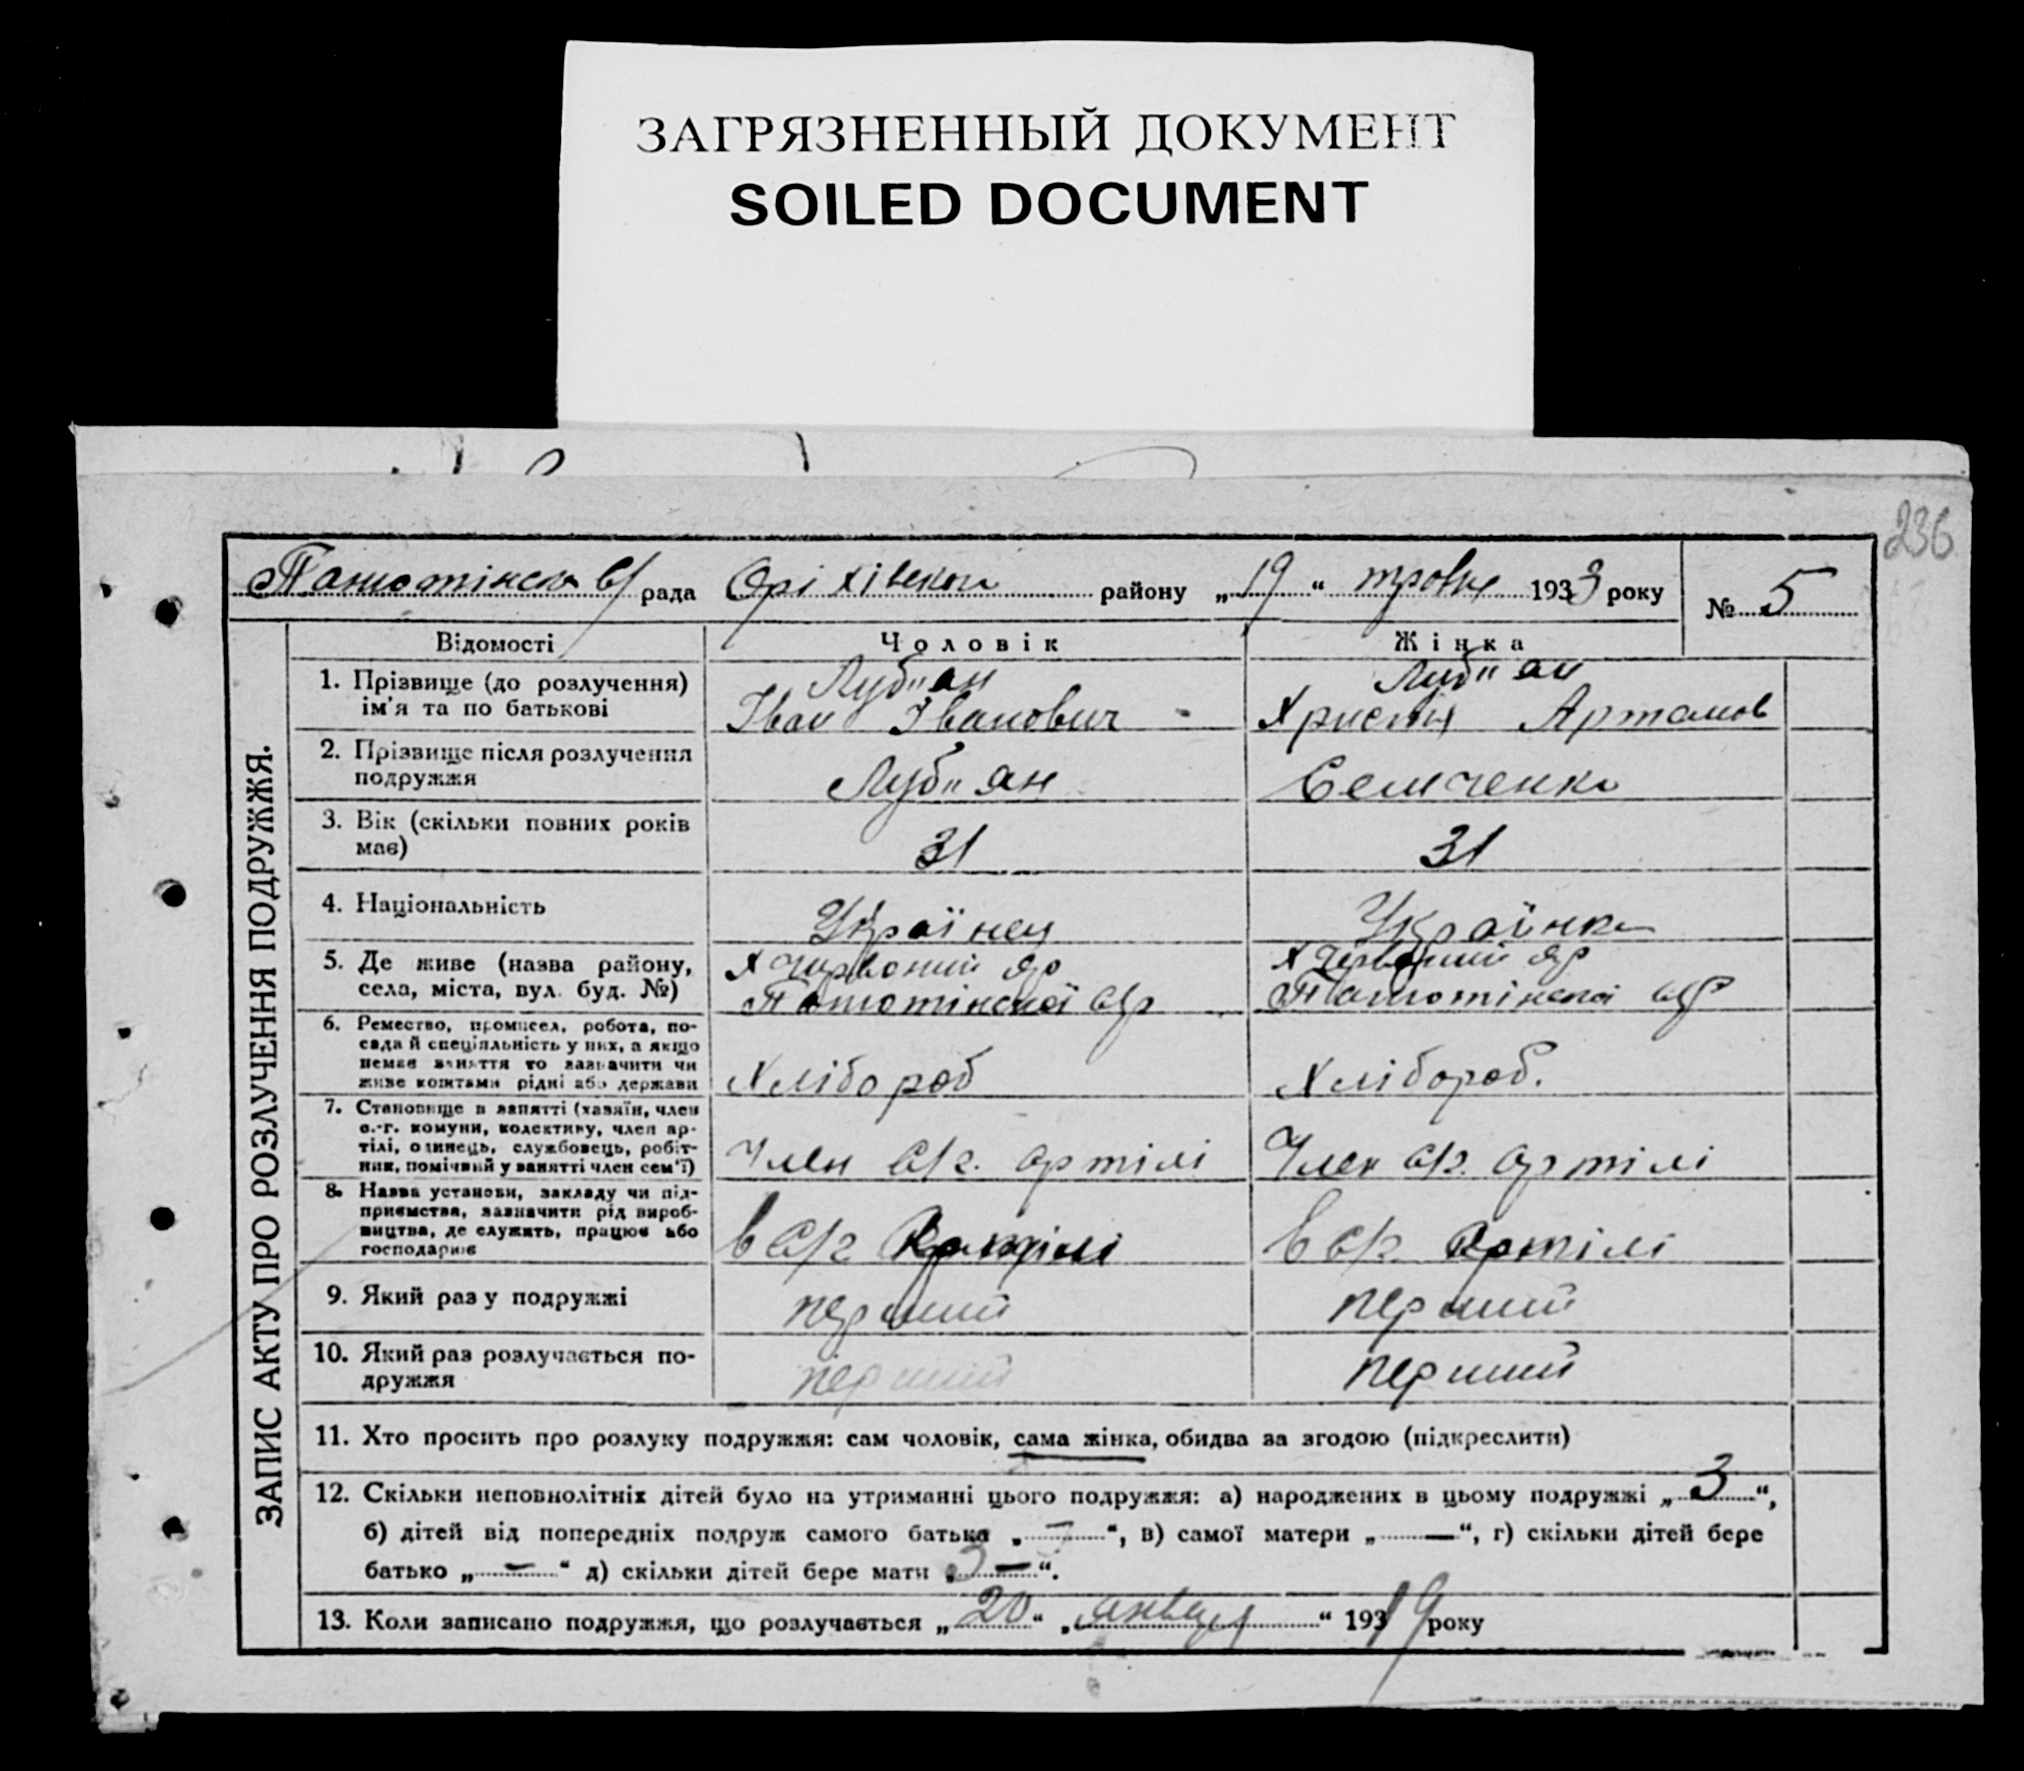 ЗАГРЯЗНЕННЫЙ ДОКУМЕНТ
SOILED DOCUMENT
236
рада Оріхівськой району „19“ 1933 року № 5
ЗАПИС АКТУ ПРО РОЗЛУЧЕННЯ ПОДРУЖЖЯ.
Відомості Чоловік Жінка
1. Прізвище (до розлучення) Луб"ян Луб"ян
ім'я та по батькові Іван Іванович Христя Артамов
2. Прізвище після розлучення
подружжя Луб"ян Семченко
3. Вік (скільки повних років
має) 31 31
4. Національність Українец Українка
5. Де живе (назва району, Х Червоний Яр Х Червоний Яр
села, міста, вул. буд. №)
6. Ремество, промисел, робота, по-
сада й спеціяльність у них, а якщо
немає заняття то зазначити чи
живе коштами рідні або держави Хлібороб Хлібороб.
7. Становище в занятті (хазяїн, член
с.-г. комуни, колективу, член ар-
тілі, одинець, службовець, робіт-
ник, помічний у занятті член сем'ї) Член С/г. артілі Член С/г. артілі
8. Назва установи, закладу чи під-
приємства, зазначити рід вироб-
ництва, де служить, працює або
господарює в С/г Артілі в С/г. Артілі
9. Який раз у подружжі перший перший
10. Який раз розлучається по-
дружжя перший перший
11. Хто просить про розлуку подружжя: сам чоловік, сама жінка, обидва за згодою (підкреслити)
12. Скільки неповнолітніх дітей було на утриманні цього подружжя: а) народжених в цьому подружжі „3“,
б) дітей від попередніх подруж самого батька „ “, в) самої матери „—“, г) скільки дітей бере
батько „—“ д) скільки дітей бере мати „3—“.
13. Коли записано подружжя, що розлучається „20“ „января“ 193 19 року